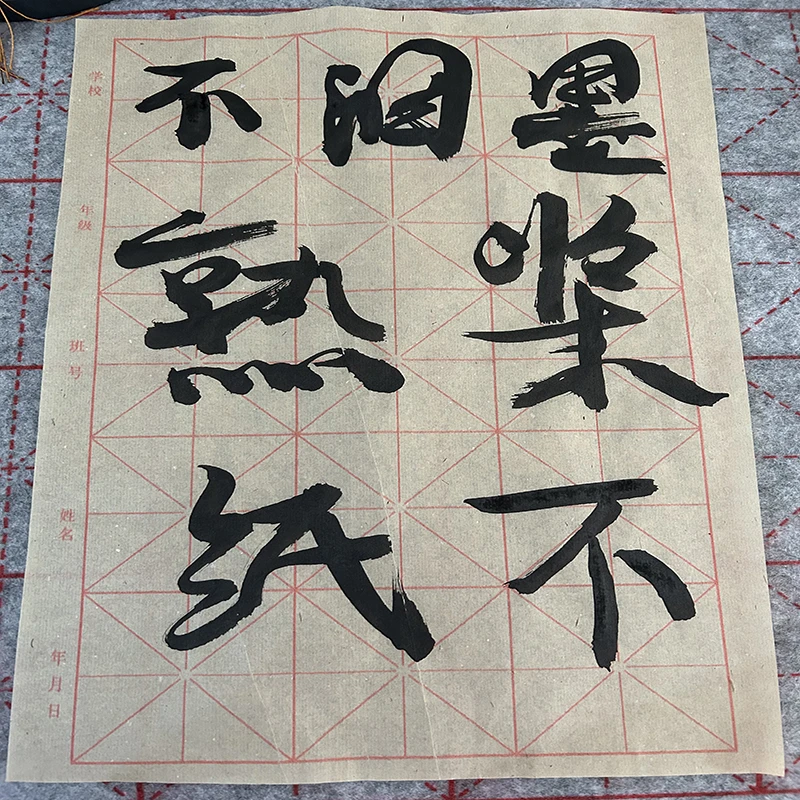 墨不
洇
不熟纸
学校
年级
班号
姓名
年月日